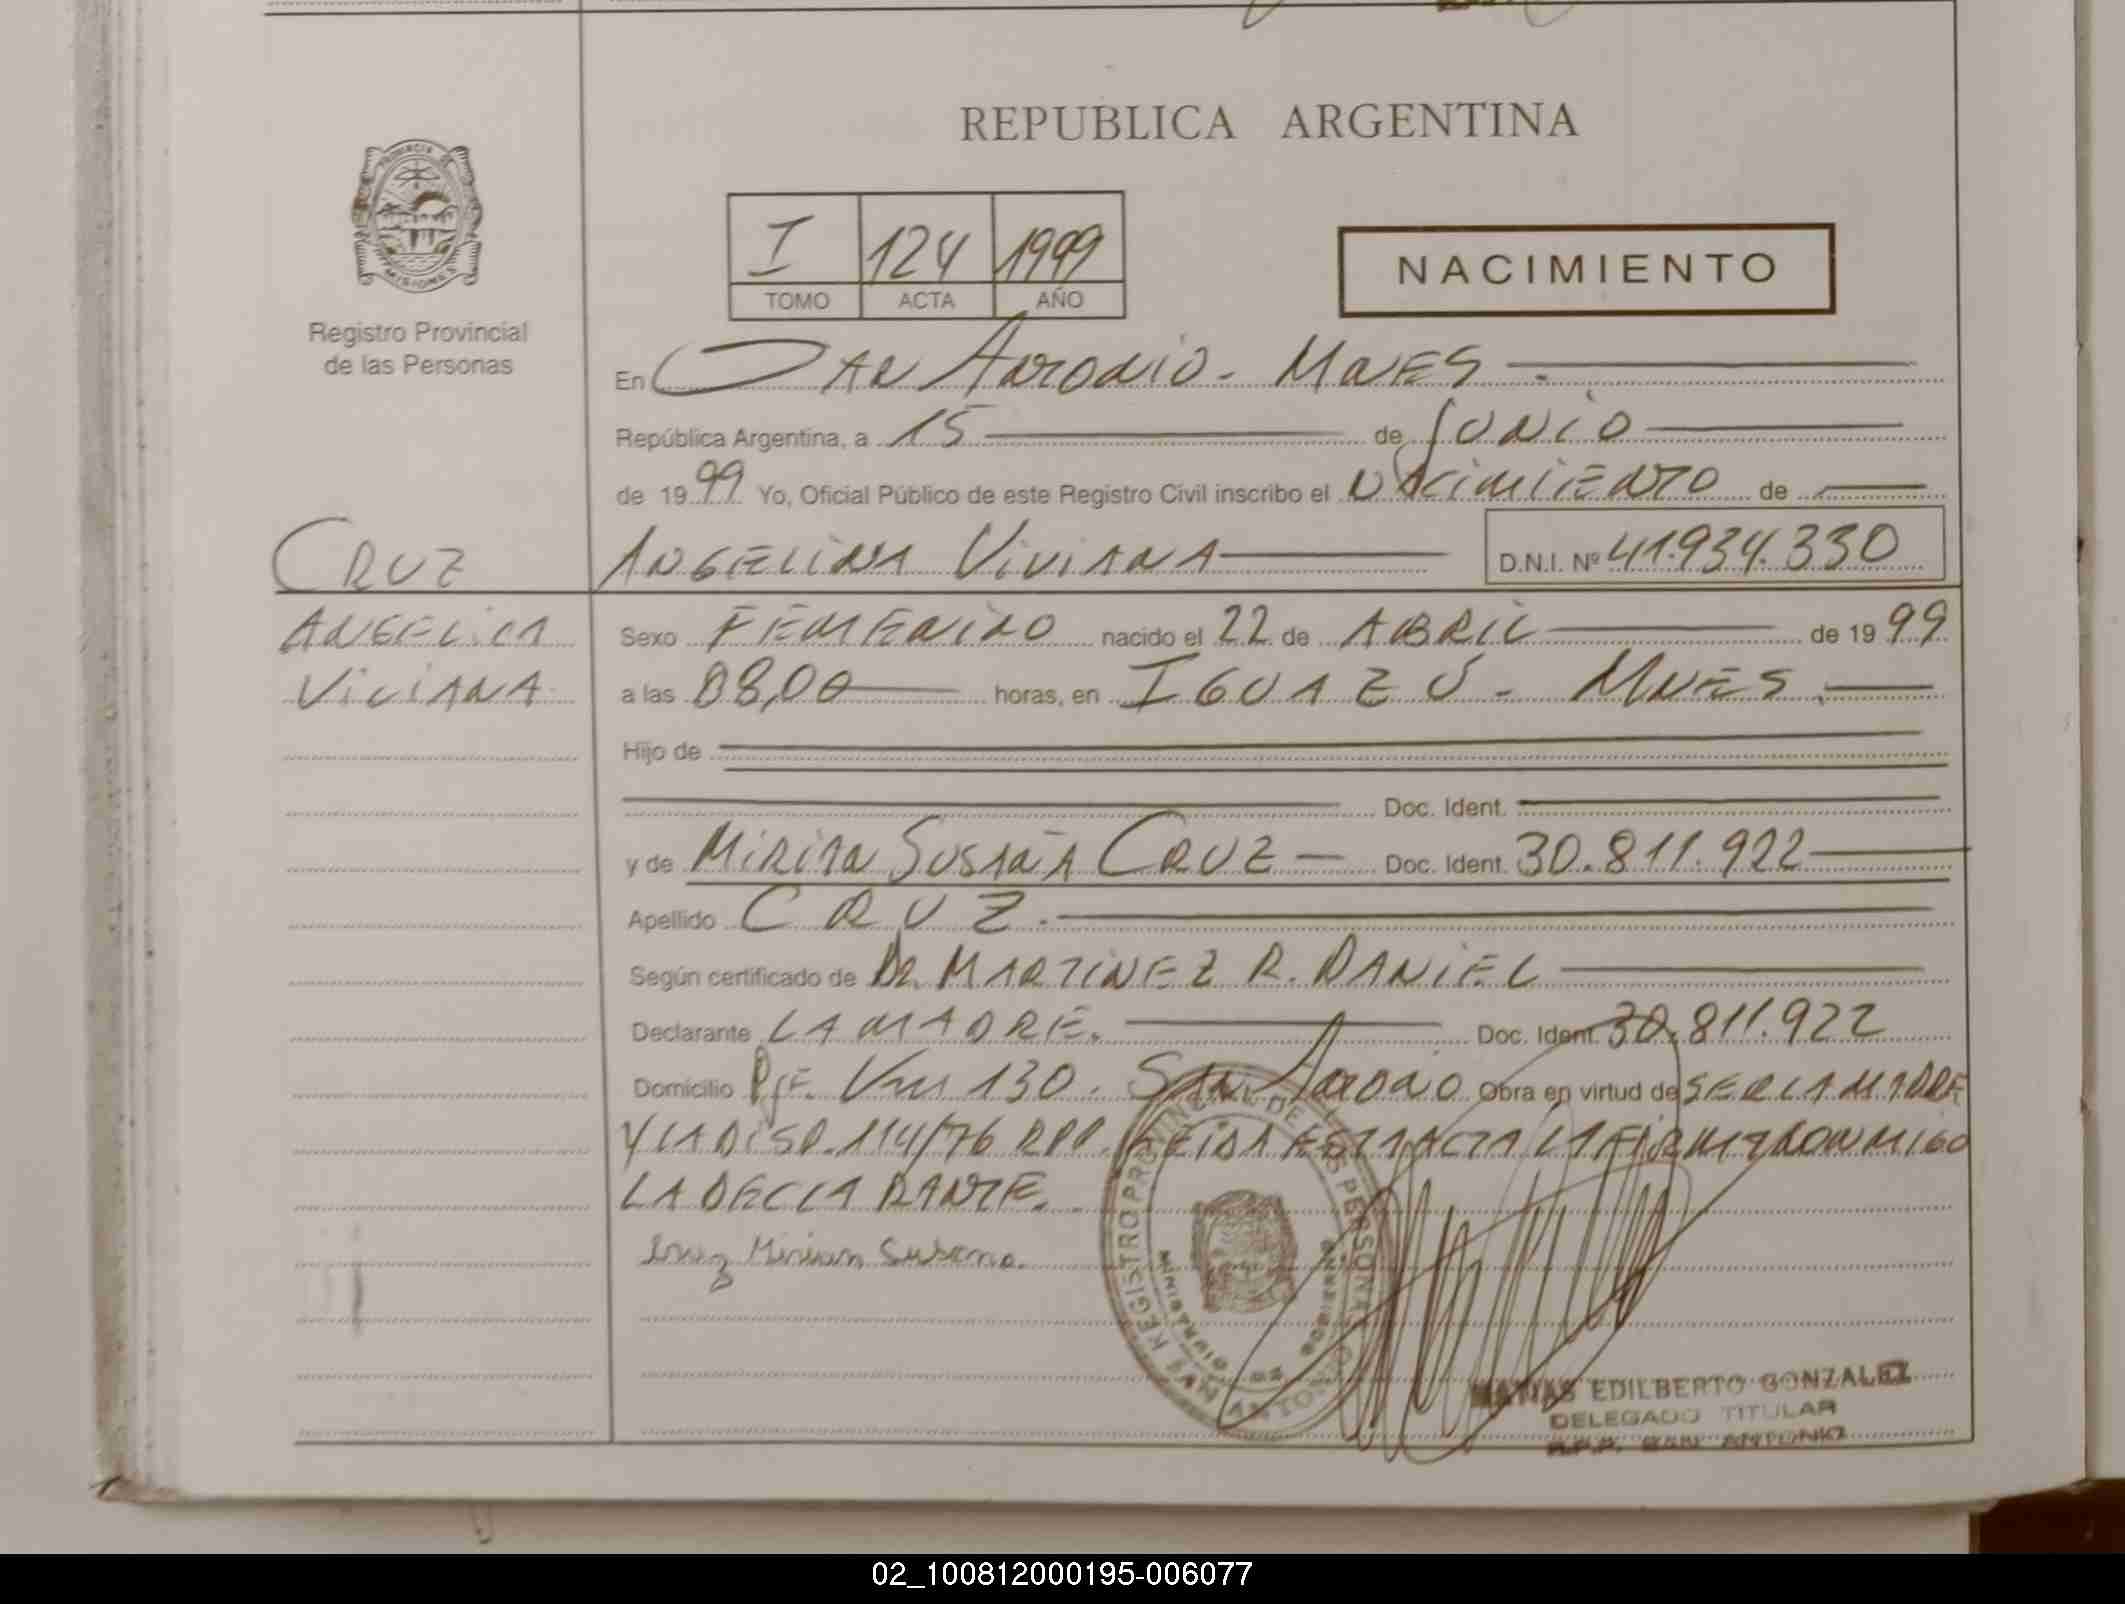 REPUBLICA ARGENTINA
PROVINCIA DE
MISIONES
Registro Provincial
de las Personas
I 124 1999
TOMO ACTA AÑO
NACIMIENTO
En SAN ANTONIO - MNES.
República Argentina, a 15 de JUNIO
de 1999 Yo, Oficial Público de este Registro Civil inscribo el NACIMIENTO de
ANGELINA VIVIANA D.N.I. Nº 41.934.330
CRUZ
ANGELICA
VIVIANA
Sexo FEMENINO nacido el 22 de ABRIL de 1999
a las 08,00 horas, en IGUAZÚ - MNES.
Hijo de
Doc. Ident.
y de MIRIAN SUSANA CRUZ Doc. Ident. 30.811.922
Apellido CRUZ.
Según certificado de DR. MARTINEZ R. DANIEL
Declarante LA MADRE. Doc. Ident. 30.811.922
Domicilio PJE. 130. SAN ANTONIO Obra en virtud de SER LA MADRE
Y LA DISP. 114/76 RPP. LEIDA ESTA ACTA LA FIRMA CONMIGO
LA DECLARANTE.
Cruz Mirian Susana.
REGISTRO PROVINCIAL DE LAS PERSONAS
SAN ANTONIO
MINISTERIO DE GOBIERNO
MISIONES
EDILBERTO GONZALEZ
DELEGADO TITULAR
R.P.P. SAN ANTONIO
02_100812000195-006077